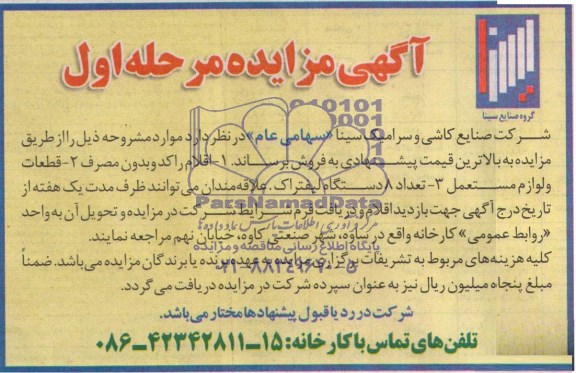 گروه صنایع سینا
آگهی مزایده مرحله اول
شرکت صنایع کاشی و سرامیک سینا «سهامی عام» در نظر دارد موارد مشروحه ذیل را از طریق
مزایده به بالاترین قیمت پیشنهادی به فروش برساند. ۱- اقلام راکد و بدون مصرف ۲- قطعات
و لوازم مستعمل ۳- تعداد ۸ دستگاه لیفتراک. علاقه‌مندان می‌توانند ظرف مدت یک هفته از
تاریخ درج آگهی جهت بازدید اقلام و دریافت فرم شرایط شرکت در مزایده و تحویل آن به واحد
«روابط عمومی» کارخانه واقع در ساوه، شهر صنعتی کاوه، خیابان نهم مراجعه نمایند.
کلیه هزینه‌های مربوط به تشریفات برگزاری مزایده به عهده برنده یا برندگان مزایده می‌باشد. ضمناً
مبلغ پنجاه میلیون ریال نیز به عنوان سپرده شرکت در مزایده دریافت می‌گردد.
شرکت در رد یا قبول پیشنهادها مختار می‌باشد.
تلفن‌های تماس با کارخانه: ۱۵-۴۲۳۴۲۸۱۱-۰۸۶
ParsNamadData
پایگاه اطلاع رسانی مناقصه و مزایده
۰۲۱-۸۸۳۴۹۶۷۰-۵